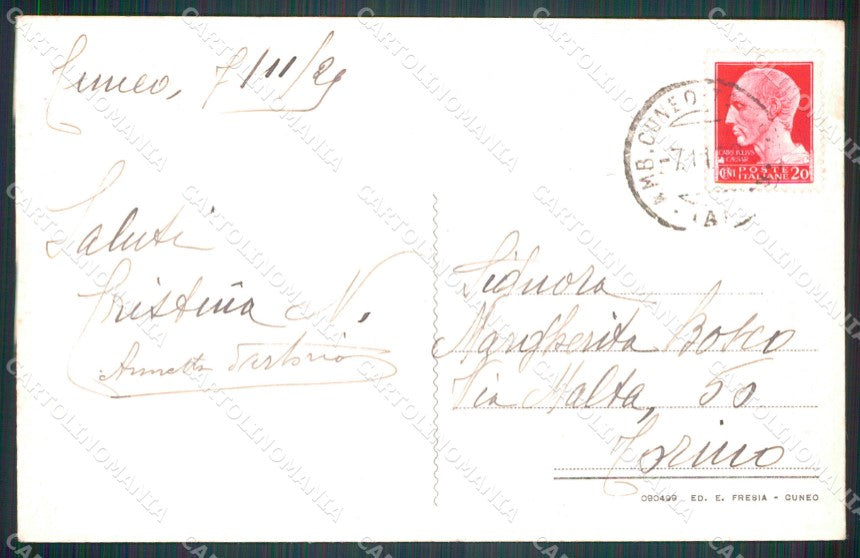 Cuneo, 7/11/29
Saluti
Cristina N.
Annetta
Signora
Margherita Bosco
Via Malta, 50
Torino
090499 ED. E. FRESIA - CUNEO
AMB. CUNEO
7.11
CAIVS IVLIVS
CAESAR
POSTE
CENT ITALIANE 20
CARTOLINOMANIA